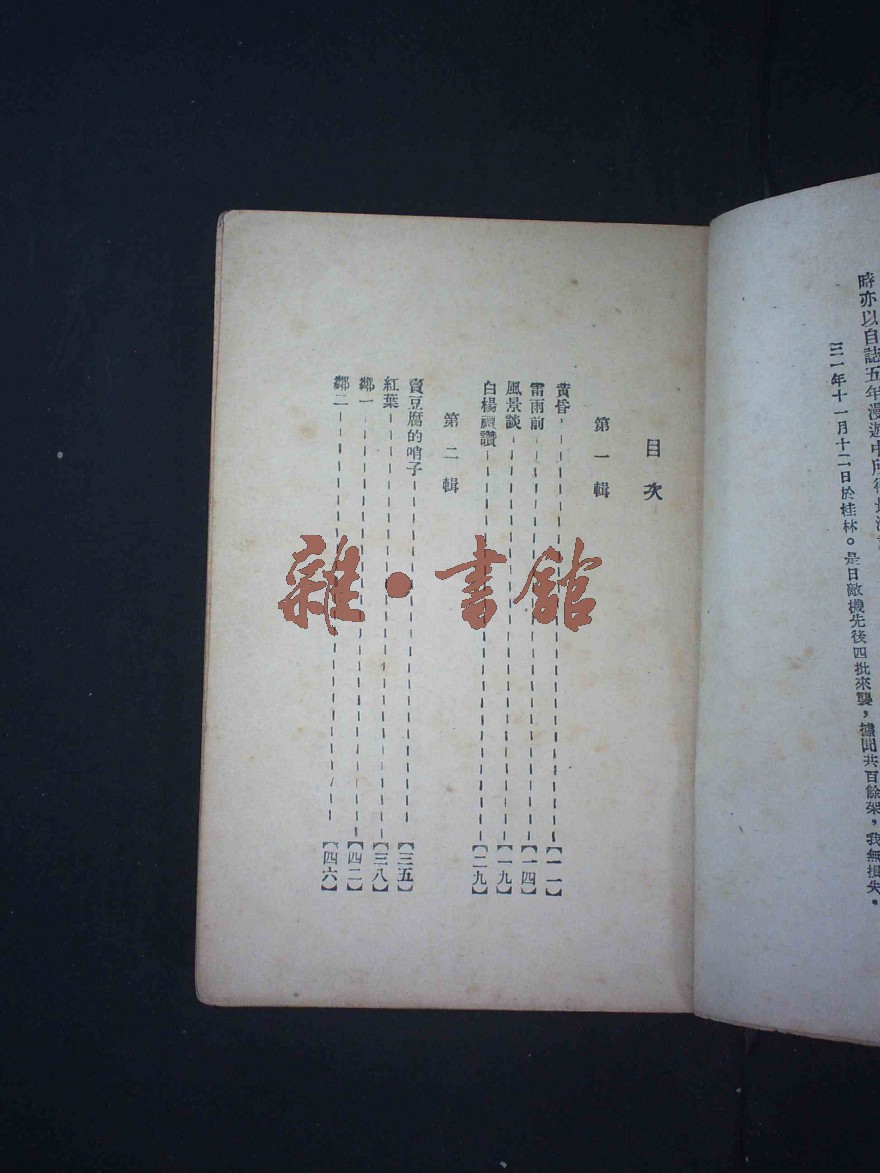 時亦以自誌五年漫遊中所得
三一年十一月十二日於桂林。是日敵機先後四批來襲，據聞共百餘架，我無損失。
目次
第一輯
黃昏【一一】
雷雨前【一四】
風景談【一九】
白楊禮讚【二九】
第二輯
賣豆腐的哨子【三五】
紅葉【三八】
鄰一【四二】
鄰二【四六】
雜·書館